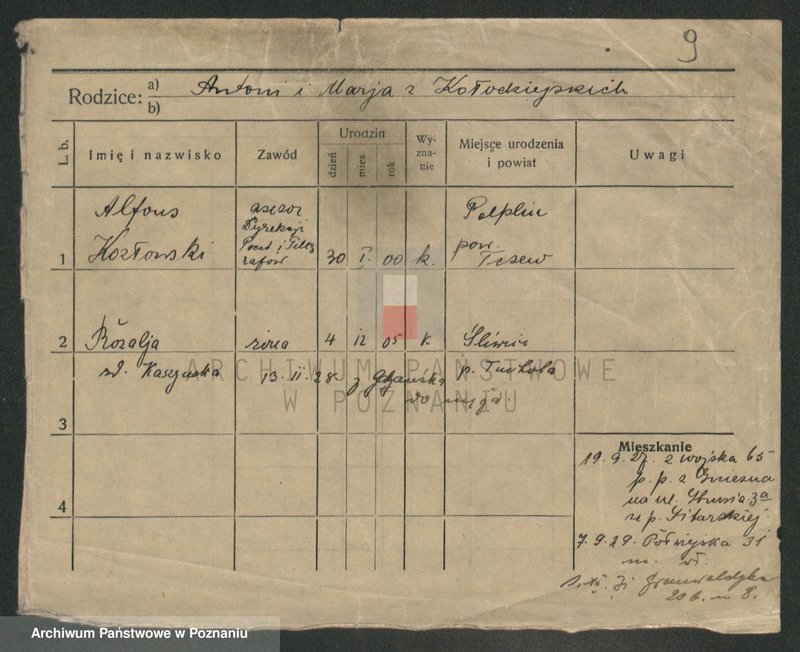 9
Rodzice: a) Antoni i Marja z Kołodziejskich
b)
L. b.
Imię i nazwisko
Zawód
Urodzin
dzień
mies.
rok
Wy-
zna-
nie
Miejsce urodzenia
i powiat
Uwagi
1
Alfons
Kozłowski
asesor
Dyrekcji
Poczt i Teleg
rafów
30 I. 00 k.
Pelplin
pow.
Tczew
2
Rozalja żona 4 12 05 k Śliwice
zd. 13. II. 28 z Gdańska p. Tuchola
do
3
4
ARCHIWUM PAŃSTWOWE
W POZNANIU
Mieszkanie
19. 9. 27. z wojska 65
p. p. z Gniezna
na ul. Strusia 3a
u p. Sitarskiej.
7. 9. 29. Półwiejska 31
m. wł.
Grunwaldzka
20 b. m 8.
Archiwum Państwowe w Poznaniu